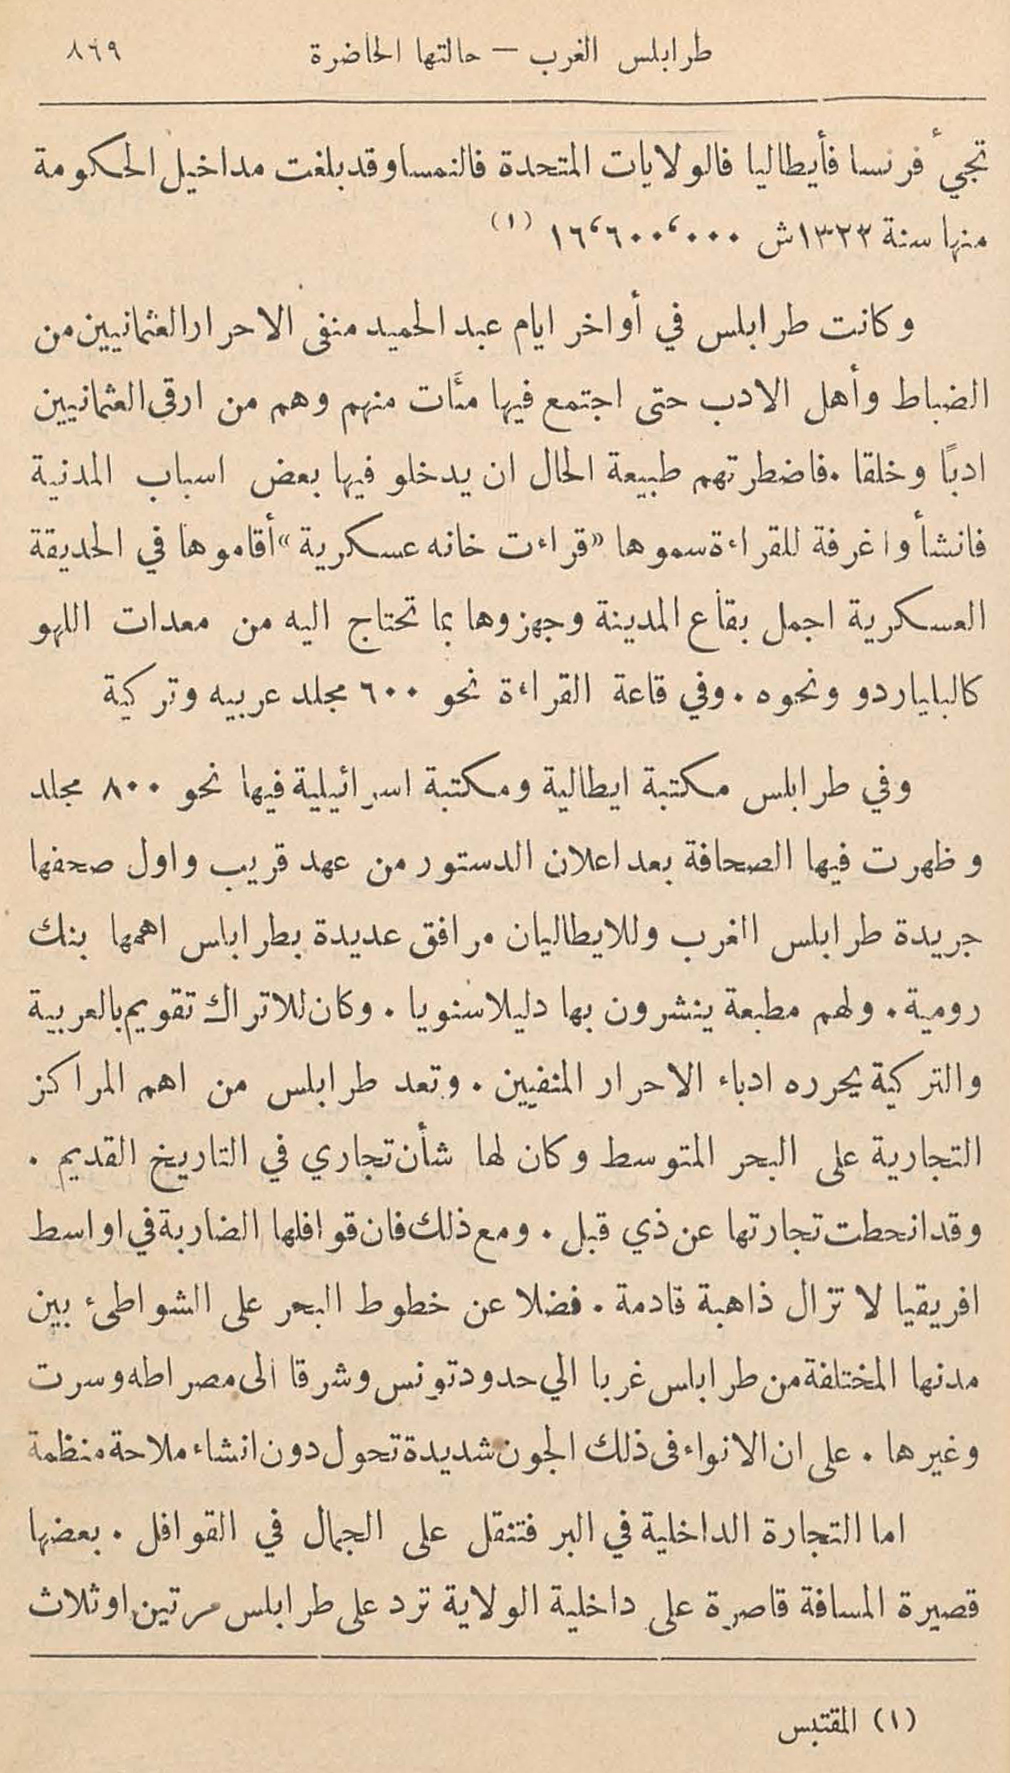 طرابلس الغرب — حالتها الحاضرة ٨٦٩
تجيءُ فرنسا فأيطاليا فالولايات المتحدة فالنمسا وقد بلغت مداخيل الحكومة
منها سنة ١٣٢٢ش ١٦،٦٠٠،٠٠٠ (١)
وكانت طرابلس في أواخر ايام عبد الحميد منفى الاحرار العثمانيين من
الضباط وأهل الادب حتى اجتمع فيها مئَات منهم وهم من ارقى العثمانيين
ادبًا وخلقا . فاضطرتهم طبيعة الحال ان يدخلو فيها بعض اسباب المدنية
فانشأوا غرفة للقراءة سموها «قراءت خانه عسكرية» أقاموها في الحديقة
العسكرية اجمل بقاع المدينة وجهزوها بما تحتاج اليه من معدات اللهو
كالبلياردو ونحوه . وفي قاعة القراءة نحو ٦٠٠ مجلد عربيه وتركية
وفي طرابلس مكتبة ايطالية ومكتبة اسرائيلية فيها نحو ٨٠٠ مجلد
وظهرت فيها الصحافة بعد اعلان الدستور من عهد قريب واول صحفها
جريدة طرابلس الغرب وللايطاليان مرافق عديدة بطرابلس اهمها بنك
رومية . ولهم مطبعة ينشرون بها دليلا سنويا . وكان للاتراك تقويم بالعربية
والتركية يحرره ادباء الاحرار المنفيين . وتعد طرابلس من اهم المراكز
التجارية على البحر المتوسط وكان لها شأن تجاري في التاريخ القديم .
وقد انحطت تجارتها عن ذي قبل . ومع ذلك فان قوافلها الضاربة في اواسط
افريقيا لا تزال ذاهبة قادمة . فضلا عن خطوط البحر على الشواطئ بين
مدنها المختلفة من طرابلس غربا الي حدود تونس وشرقا الى مصراطه وسرت
وغيرها . على ان الانواء فى ذلك الجون شديدة تحول دون انشاء ملاحة منظمة
اما التجارة الداخلية في البر فتنقل على الجمال في القوافل . بعضها
قصيرة المسافة قاصرة على داخلية الولاية ترد على طرابلس مرتين او ثلاث
(١) المقتبس